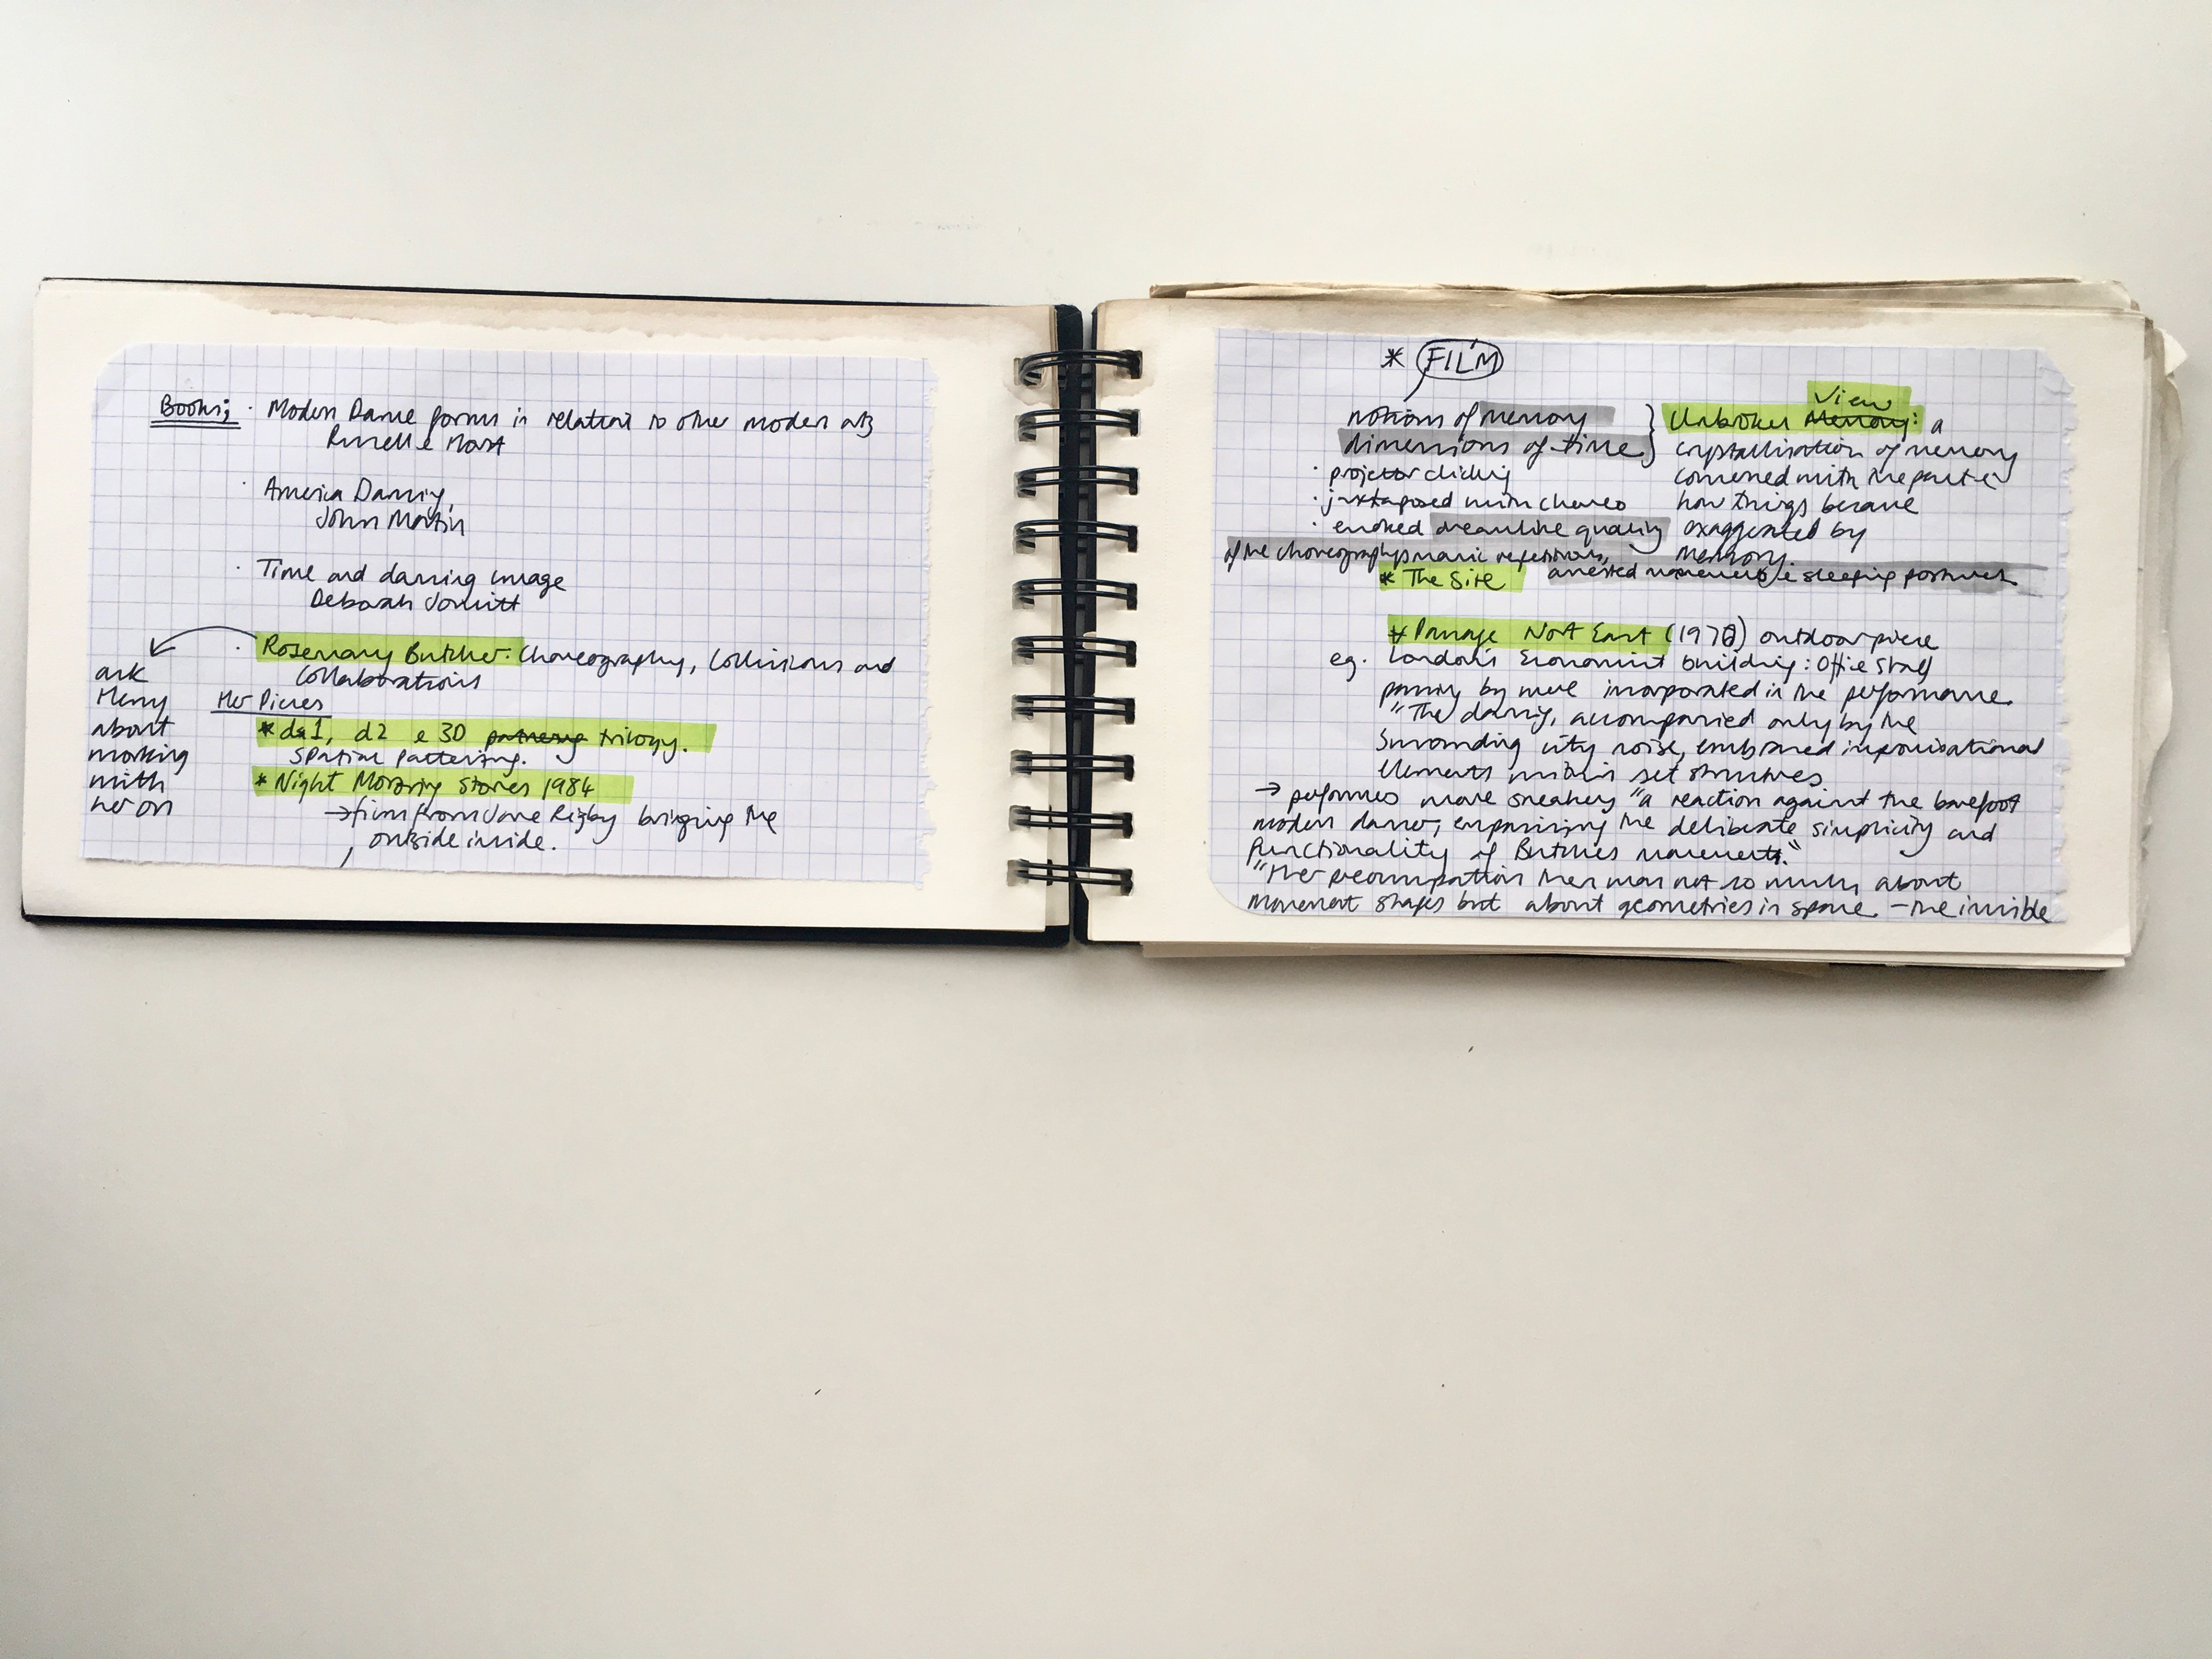 Books; · Modern Dance forms in relation to other modern arts
· America Dancing,
John Martin
· Time and dancing image
Deborah Jowitt
· Rosemary Butcher: Choreography, Collisions and
Collaborations
ask
Henry
about
working
with
her on
Her Pieces
* d1, d2 e 3D trilogy.
Spatial Pattering.
* Night Mooring Stones 1984
→ film from Jane Rigby bringing the
outside inside.
* FILM
notions of memory
dimensions of time
· projector clicking
· juxtaposed with choreo
· evoked dreamlike quality
of the choreography manic repetitions,
arrested movements e sleeping postures
View
Unbroken Memory: a
crystallisation of memory
concerned with the past e
how things became
exaggerated by
memory.
* The Site
* Passage Nort East (1976) outdoor piece
eg. London's Economist building: Office staff
passing by were incorporated in the performance.
"The dancing, accompanied only by the
surrounding city noise, embraced improvisational
elements within set structures
→ performers wore sneakers "a reaction against the barefoot
modern dance, emphasizing the deliberate simplicity and
functionality of Butchers movements."
"Her preoccupation then was not so much about
movement shapes but about geometries in space - the invisible